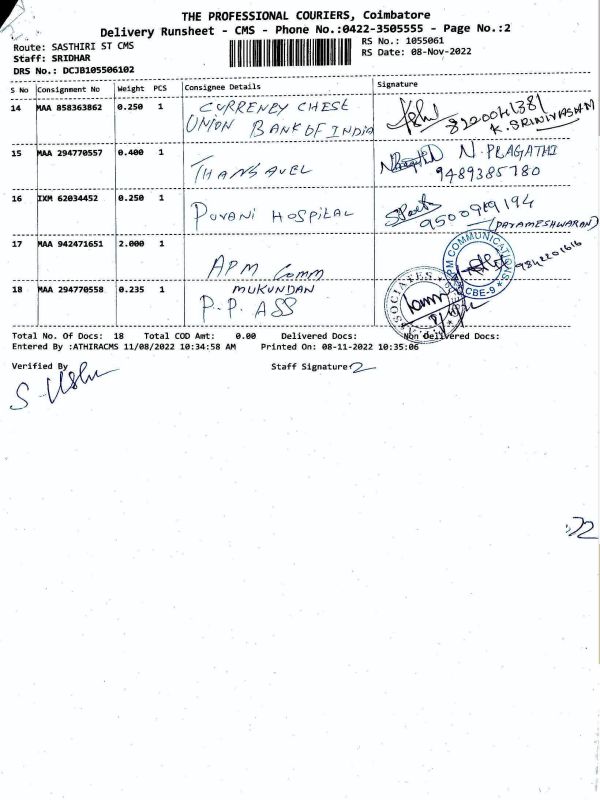 THE PROFESSIONAL COURIERS, Coimbatore
Delivery Runsheet - CMS - Phone No.:0422-3505555 - Page No.:2
Route: SASTHIRI ST CMS
RS No.: 1055061
Staff: SRIDHAR
RS Date: 08-Nov-2022
DRS No.: DCJB105506102
S No Consignment No Weight PCS Consignee Details Signature
14 MAA 858363862 0.250 1 CURRENEY CHEST
UNION BANK OF INDIA
8220041381
K. SRINIVASAN
15 MAA 294770557 0.400 1 THANGAVEL
N. PRAGATHI
9489385780
16 IXM 62034452 0.250 1 PUVANI HOSPITAL
9500969194
(PAYAMESHWARAN)
17 MAA 942471651 2.000 1 APM Comm
APM COMMUNICATIONS
CBE-9
9842201616
18 MAA 294770558 0.235 1 MUKUNDAN
P.P. ASS
Total No. Of Docs: 18 Total COD Amt: 0.00 Delivered Docs: Non delivered Docs:
Entered By :ATHIRACMS 11/08/2022 10:34:58 AM Printed On: 08-11-2022 10:35:06
Verified By
Staff Signature